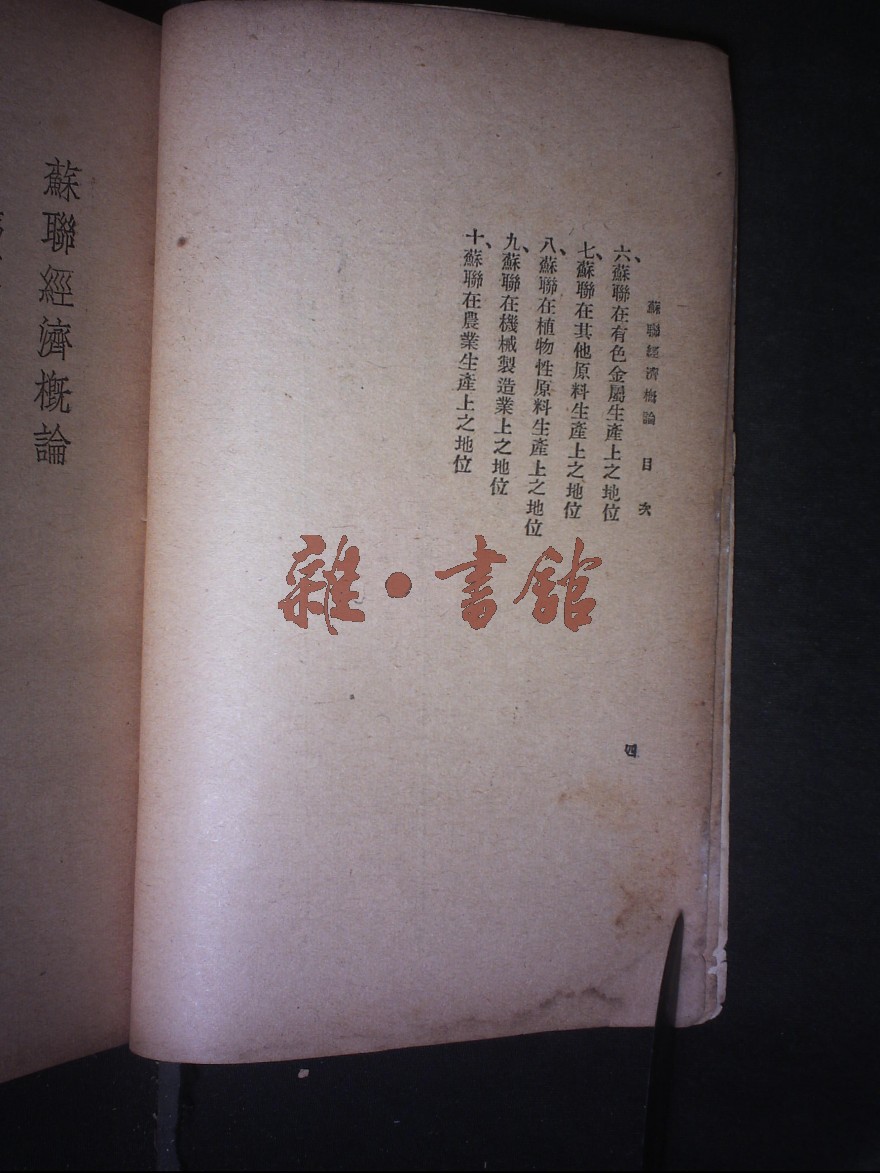 蘇聯經濟概論 目次
六、蘇聯在有色金屬生產上之地位
七、蘇聯在其他原料生產上之地位
八、蘇聯在植物性原料生產上之地位
九、蘇聯在機械製造業上之地位
十、蘇聯在農業生產上之地位
四
蘇聯經濟概論
雜·書館